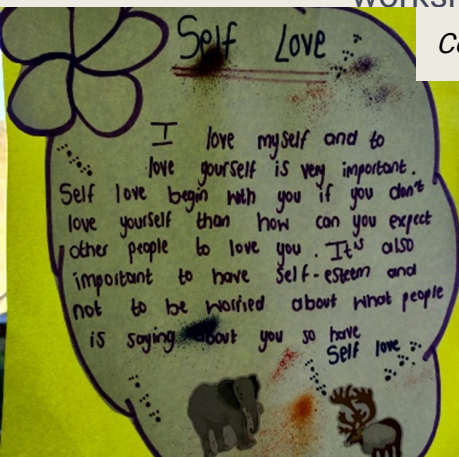 Self Love
I love myself and to
love yourself is very important.
Self love begin with you if you don't
love yourself than how can you expect
other people to love you. It is also
important to have self-esteem and
not to be worried about what people
is saying about you so have
Self love